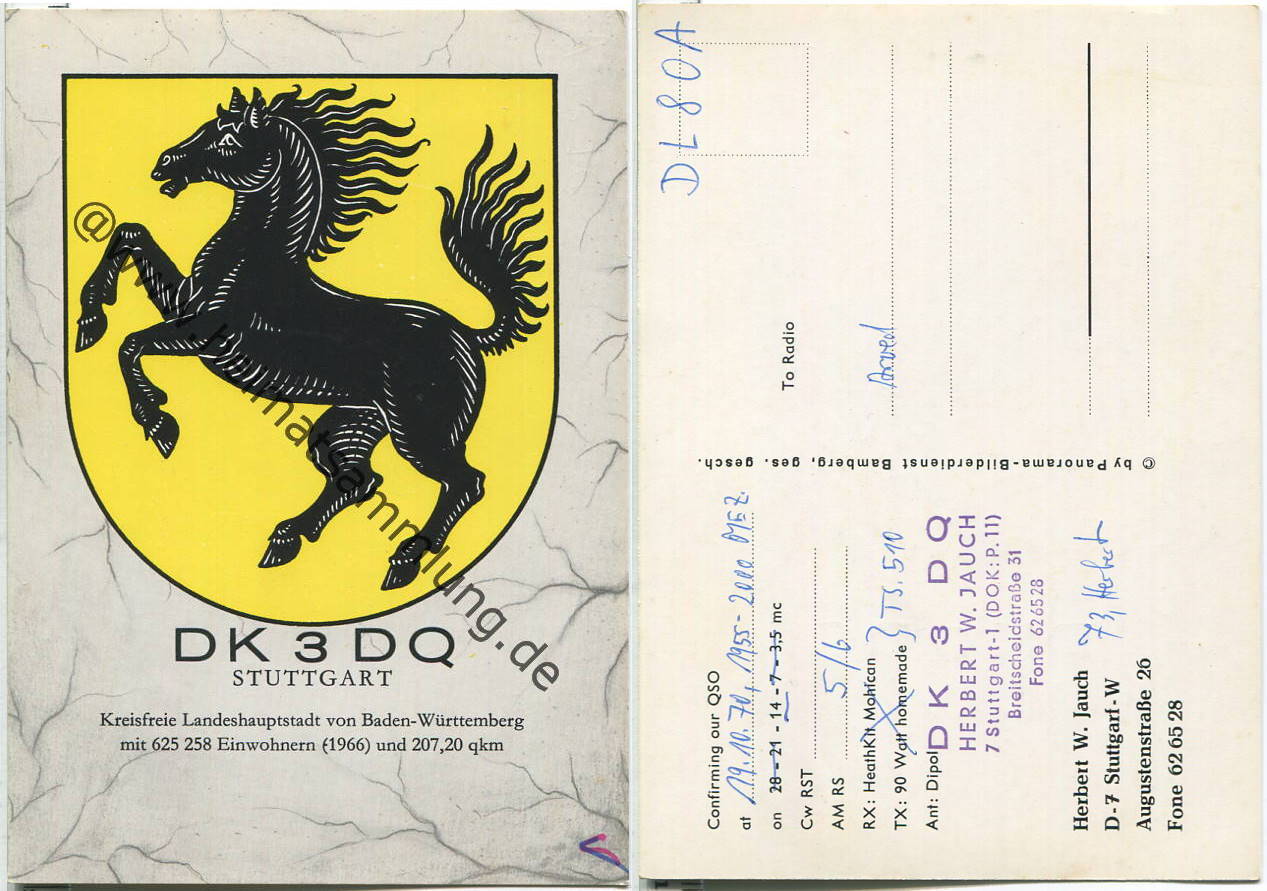 @www.heimatsammlung.de
DK 3 DQ
STUTTGART
Kreisfreie Landeshauptstadt von Baden-Württemberg
mit 625 258 Einwohnern (1966) und 207,20 qkm
DL8OA
To Radio
Arved
© by Panorama-Bilderdienst Bamberg, ges. gesch.
Confirming our QSO
at 19.10.70, 1955-2000 MEZ.
on 28 - 21 - 14 - 7 - 3,5 mc
Cw RST
AM RS 5/6
RX: HeathKit Mohican
TX: 90 Watt homemade } TS. 510
Ant: Dipol
DK 3 DQ
HERBERT W. JAUCH
7 Stuttgart-1 (DOK: P.11)
Breitscheidstraße 31
Fone 626528
Herbert W. Jauch 73, Herbert
D-7 Stuttgart-W
Augustenstraße 26
Fone 62 65 28